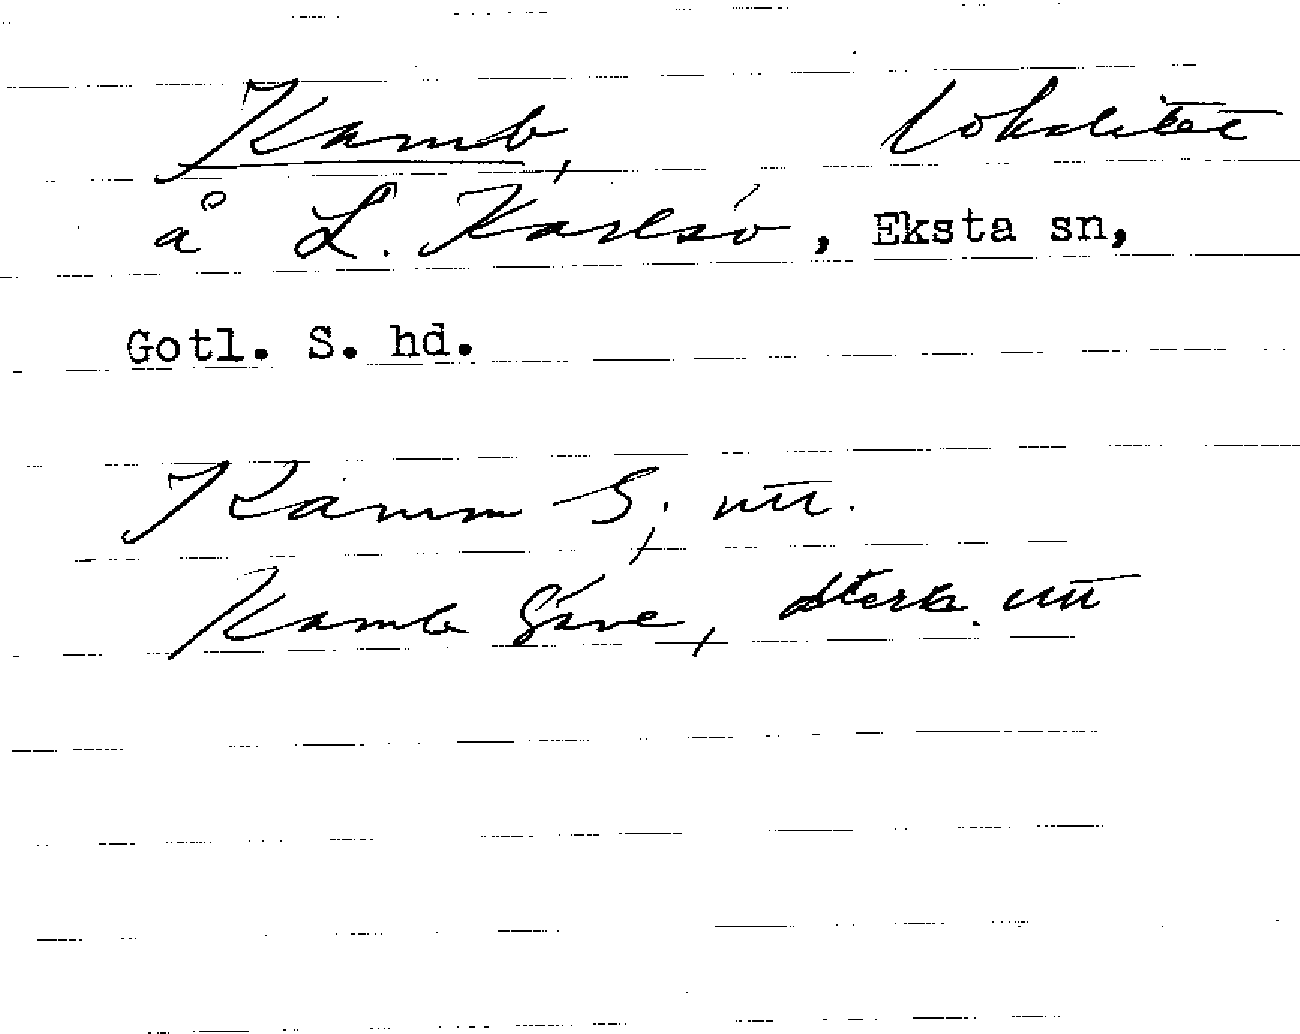 Kamb, Lokalitet
å L. Karlsö, Eksta sn,
Gotl. S. hd.
Kamm S. utt.
Kamb Säve, sterk. utt